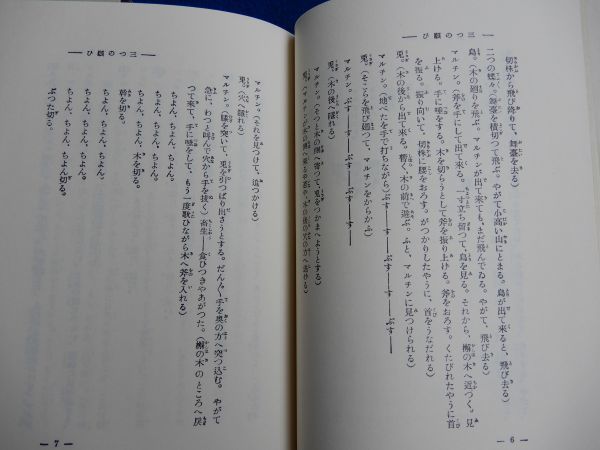 ―三つの願ひ―
切株から飛び降りて、舞臺を去る)
二つの蝶々。(舞臺を横切つて飛ぶ。やがて小高い山にとまる。鳥が出て來ると、飛び去る)
鳥。(木の廻りを飛ぶ。マルチンが出て來ても、まだ飛んでゐる。やがて、飛び去る)
マルチン。(斧を手にして出て來る。一寸立ち留つて、鳥を見る。それから、檞の木へ近づく。見
上げる。手に唾をする。木を切らうとして斧を振り上げる。斧をおろす。くたびれたやうに首
を振る。振り向いて、切株に腰をおろす。がつかりしたやうに、首をうなだれる)
兎。(木の後から出て來る。暫く木の前で遊ぶ。ふと、マルチンに見つけられる)
マルチン。(地べたを手で打ちながら)ぷす――ぷす――ぷす――
兎。(そこらを飛び廻つて、マルチンをからかふ)
マルチン。ぷす――ぷす――ぷす――す――
兎。(木の後へ隱れる)
マルチン。(そつと木の側へ寄つて、兎をつかまへようとする)
兎。(マルチンが木の側へ來ると、木の後の穴の方へ逃げる)
― 6 ―
―三つの願ひ―
マルチン。(それを見つけて、追つかける)
兎。(穴へ隱れる)
マルチン。(膝を突いて、兎をひつぱり出さうとする。だん〱手を奧の方へ突つ込む。やがて
急に、わつと叫んで穴から手を拔く)畜生――食ひつきやあがつた。(檞の木のところへ戻
つて來て、手に唾をして、もう一度歌ひながら木へ斧を入れる)
ちよん、ちよん、ちよん。
ちよん、ちよん、木を切る。
ちよん、ちよん、ちよん。
幹を切る。
ちよん、ちよん、ちよん。
ちよん、ちよん、ちよん切る。
ぶつた切る。
― 7 ―